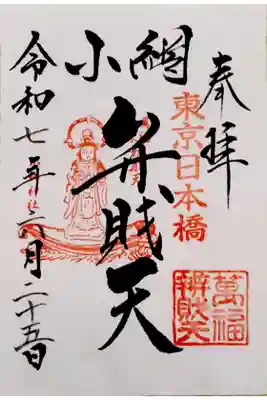 奉拝
東京日本橋
小網
弁賤天
萬福
辨財天
令和七年六月二十五日